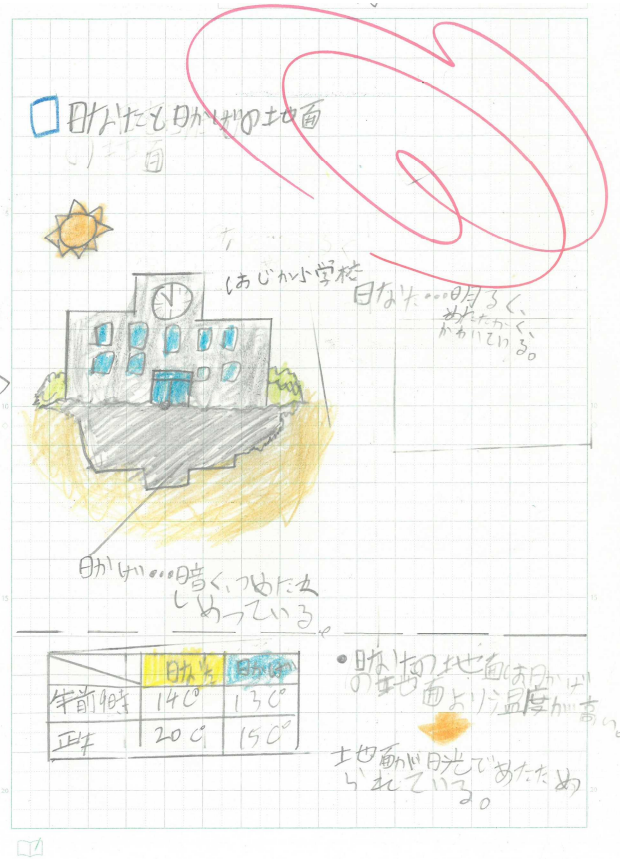 日なたと日かげの土地面
の土地面
はじかみ小学校
日なた…明るく、
あたたかく、
かわいている。
日かげ…暗く、つめたく
しめっている
日なた 日かげ
午前9時 14C° 13C°
正午 20C° 15C°
•日なたの地面は日かげ
の地面より温度が高い。
土地面が日光であたため
られている。